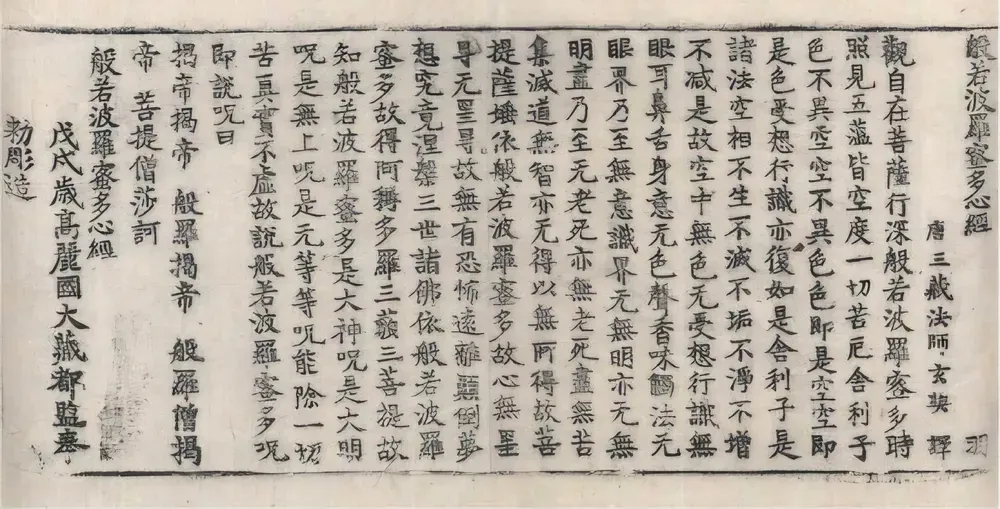 般若波羅蜜多心經 羽
唐三藏法師玄奘 譯
觀自在菩薩行深般若波羅蜜多時
照見五蘊皆空度一切苦厄舍利子
色不異空空不異色色即是空空即
是色受想行識亦復如是舍利子是
諸法空相不生不滅不垢不淨不增
不减是故空中無色无受想行識無
眼耳鼻舌身意无色聲香味觸法无
眼界乃至無意識界无無明亦无無
明盡乃至无老死亦無老死盡無苦
集滅道無智亦无得以無所得故菩
提薩埵依般若波羅蜜多故心無罣
㝵无罣㝵故無有恐怖遠離顛倒夢
想究竟涅槃三世諸佛依般若波羅
蜜多故得阿耨多羅三藐三菩提故
知般若波羅蜜多是大神呪是大明
呪是無上呪是无等等呪能除一切
苦真實不虛故說般若波羅蜜多呪
即說呪曰
揭帝揭帝 般羅揭帝 般羅僧揭
帝 菩提僧莎訶
般若波羅蜜多心經
戊戌歲高麗國大藏都監奉
勅彫造